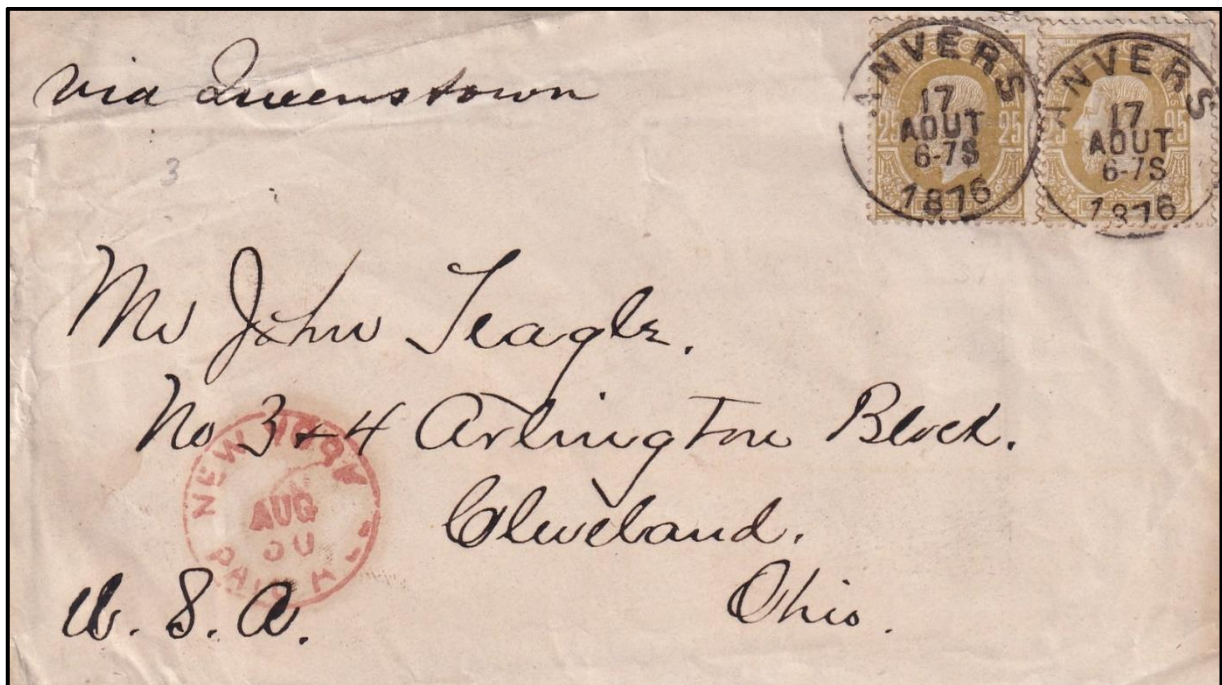 via Queenstown
3
ANVERS
17
AOUT
6-7S
1876
25 25
ANVERS
17
AOUT
6-7S
1876
25 25
Mr John Teagle.
No 3 + 4 Arlington Block.
Cleveland.
Ohio.
U. S. A.
NEW YORK
AUG
30
PAID ALL